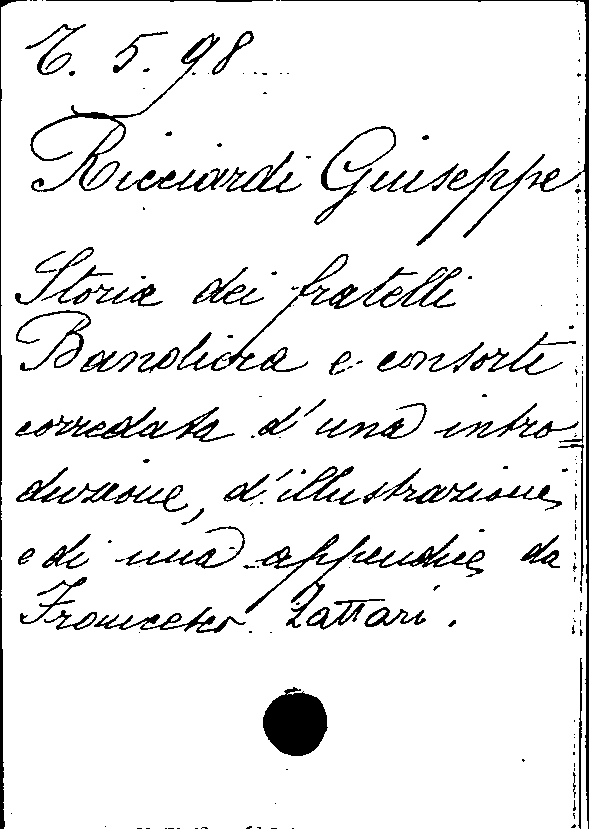 6. 5. 98
Ricciardi Giuseppe
Storia dei fratelli
Bandiera e consorti
corredata d'una intro
duzione, d'illustrazioni,
e di una appendice da
Francesco Lattari.